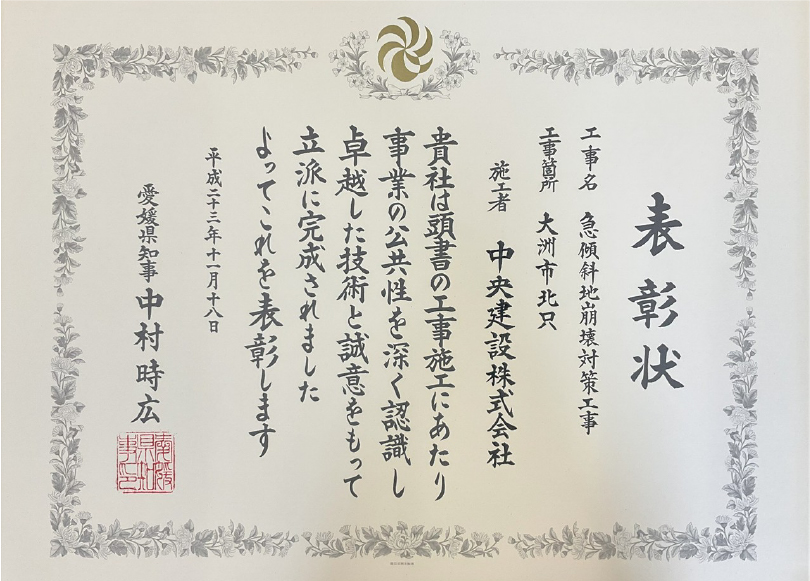 表彰状
工事名 急傾斜地崩壊対策工事
工事箇所 大洲市北只
施工者 中央建設株式会社
貴社は頭書の工事施工にあたり
事業の公共性を深く認識し
卓越した技術と誠意をもって
立派に完成されました
よってこれを表彰します
平成二十三年十一月十八日
愛媛県知事 中村時広